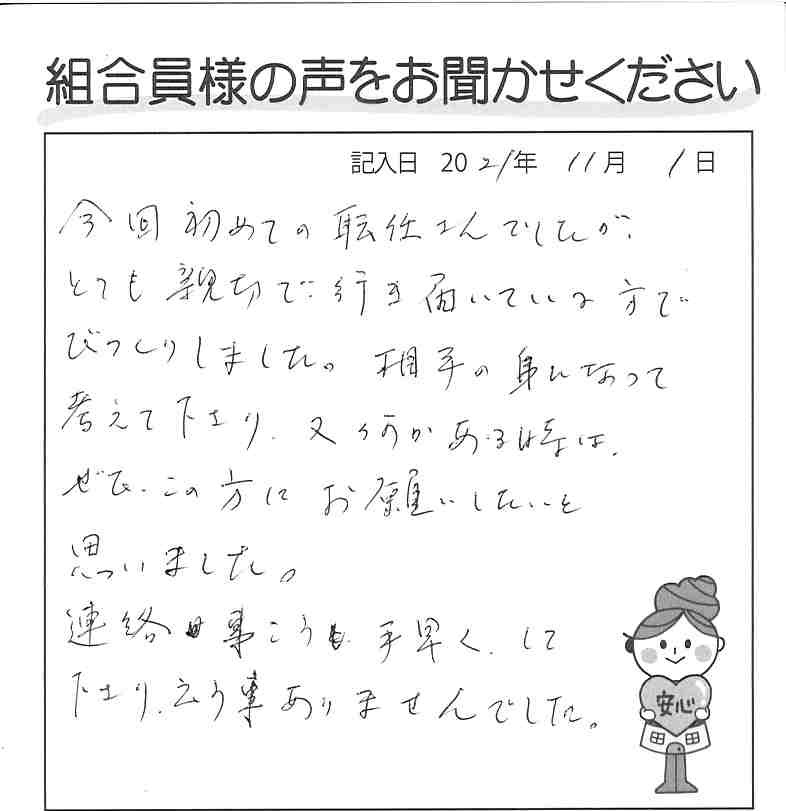 組合員様の声をお聞かせください
記入日 2021年 11月 1日
今回初めての転任さんでしたが、
とても親切で行き届いている方で
びっくりしました。相手の身になって
考えて下さり、又何かある時は、
ぜひ、この方にお願いしたいと
思いました。
連絡事こうも手早く、して
下さり、云う事ありませんでした。
安心